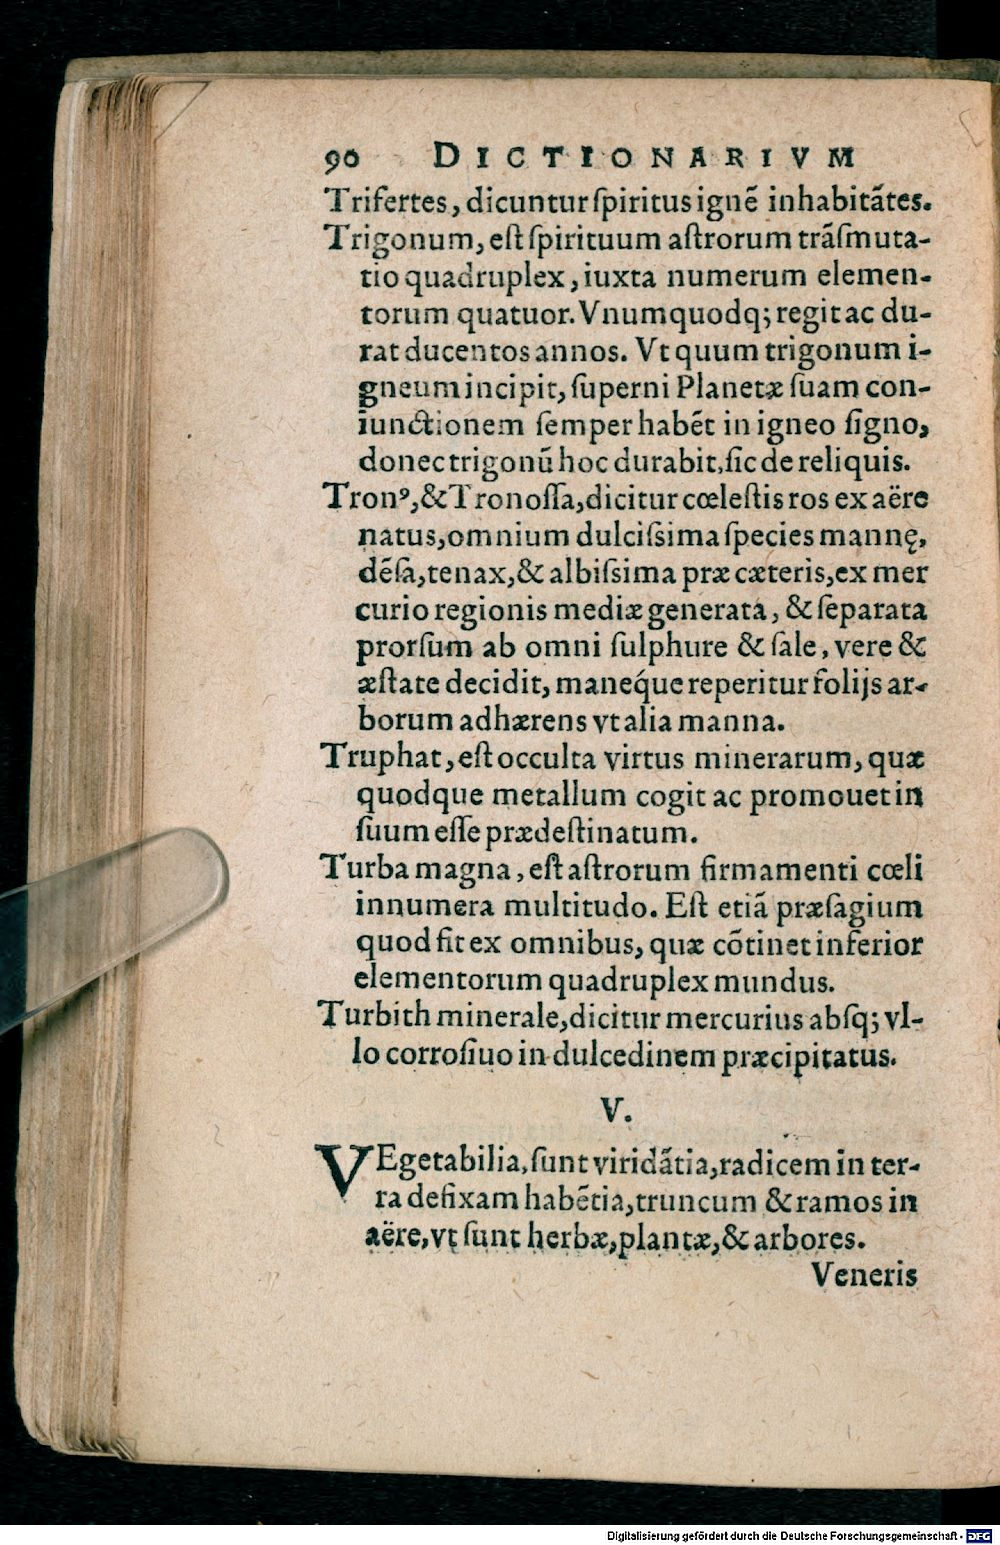 90 DICTIONARIVM
Trifertes, dicuntur ſpiritus ignẽ inhabitãtes.
Trigonum, eſt ſpirituum aſtrorum trãſmuta-
tio quadruplex, iuxta numerum elemen-
torum quatuor. Vnumquodq; regit ac du-
rat ducentos annos. Vt quum trigonum i-
gneum incipit, ſuperni Planetæ ſuam con-
iunctionem ſemper habẽt in igneo ſigno,
donec trigonũ hoc durabit, ſic de reliquis.
Tronꝰ, & Tronoſſa, dicitur cœleſtis ros ex aëre
natus, omnium dulciſsima ſpecies mannę,
dẽſa, tenax, & albiſsima præ cæteris, ex mer
curio regionis mediæ generata, & ſeparata
prorſum ab omni ſulphure & ſale, vere &
æſtate decidit, manéque reperitur folijs ar-
borum adhærens vt alia manna.
Truphat, eſt occulta virtus minerarum, quæ
quodque metallum cogit ac promouet in
ſuum eſſe prædeſtinatum.
Turba magna, eſt aſtrorum firmamenti cœli
innumera multitudo. Eſt etiã præſagium
quod fit ex omnibus, quæ cõtinet inferior
elementorum quadruplex mundus.
Turbith minerale, dicitur mercurius abſq; vl-
lo corroſiuo in dulcedinem præcipitatus.
V.
VEgetabilia, ſunt viridãtia, radicem in ter-
ra defixam habẽtia, truncum & ramos in
aëre, vt ſunt herbæ, plantæ, & arbores.
Veneris
Digitalisierung gefördert durch die Deutsche Forschungsgemeinschaft - DFG